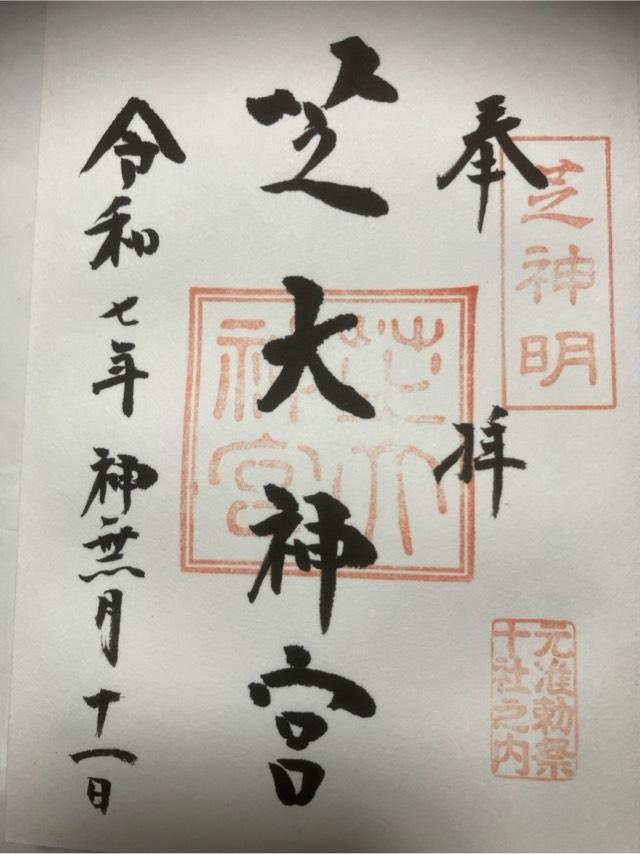 奉拝
芝神明
元准勅祭
十社之内
芝大神宮
芝大
神宮
令和七年神無月十一日